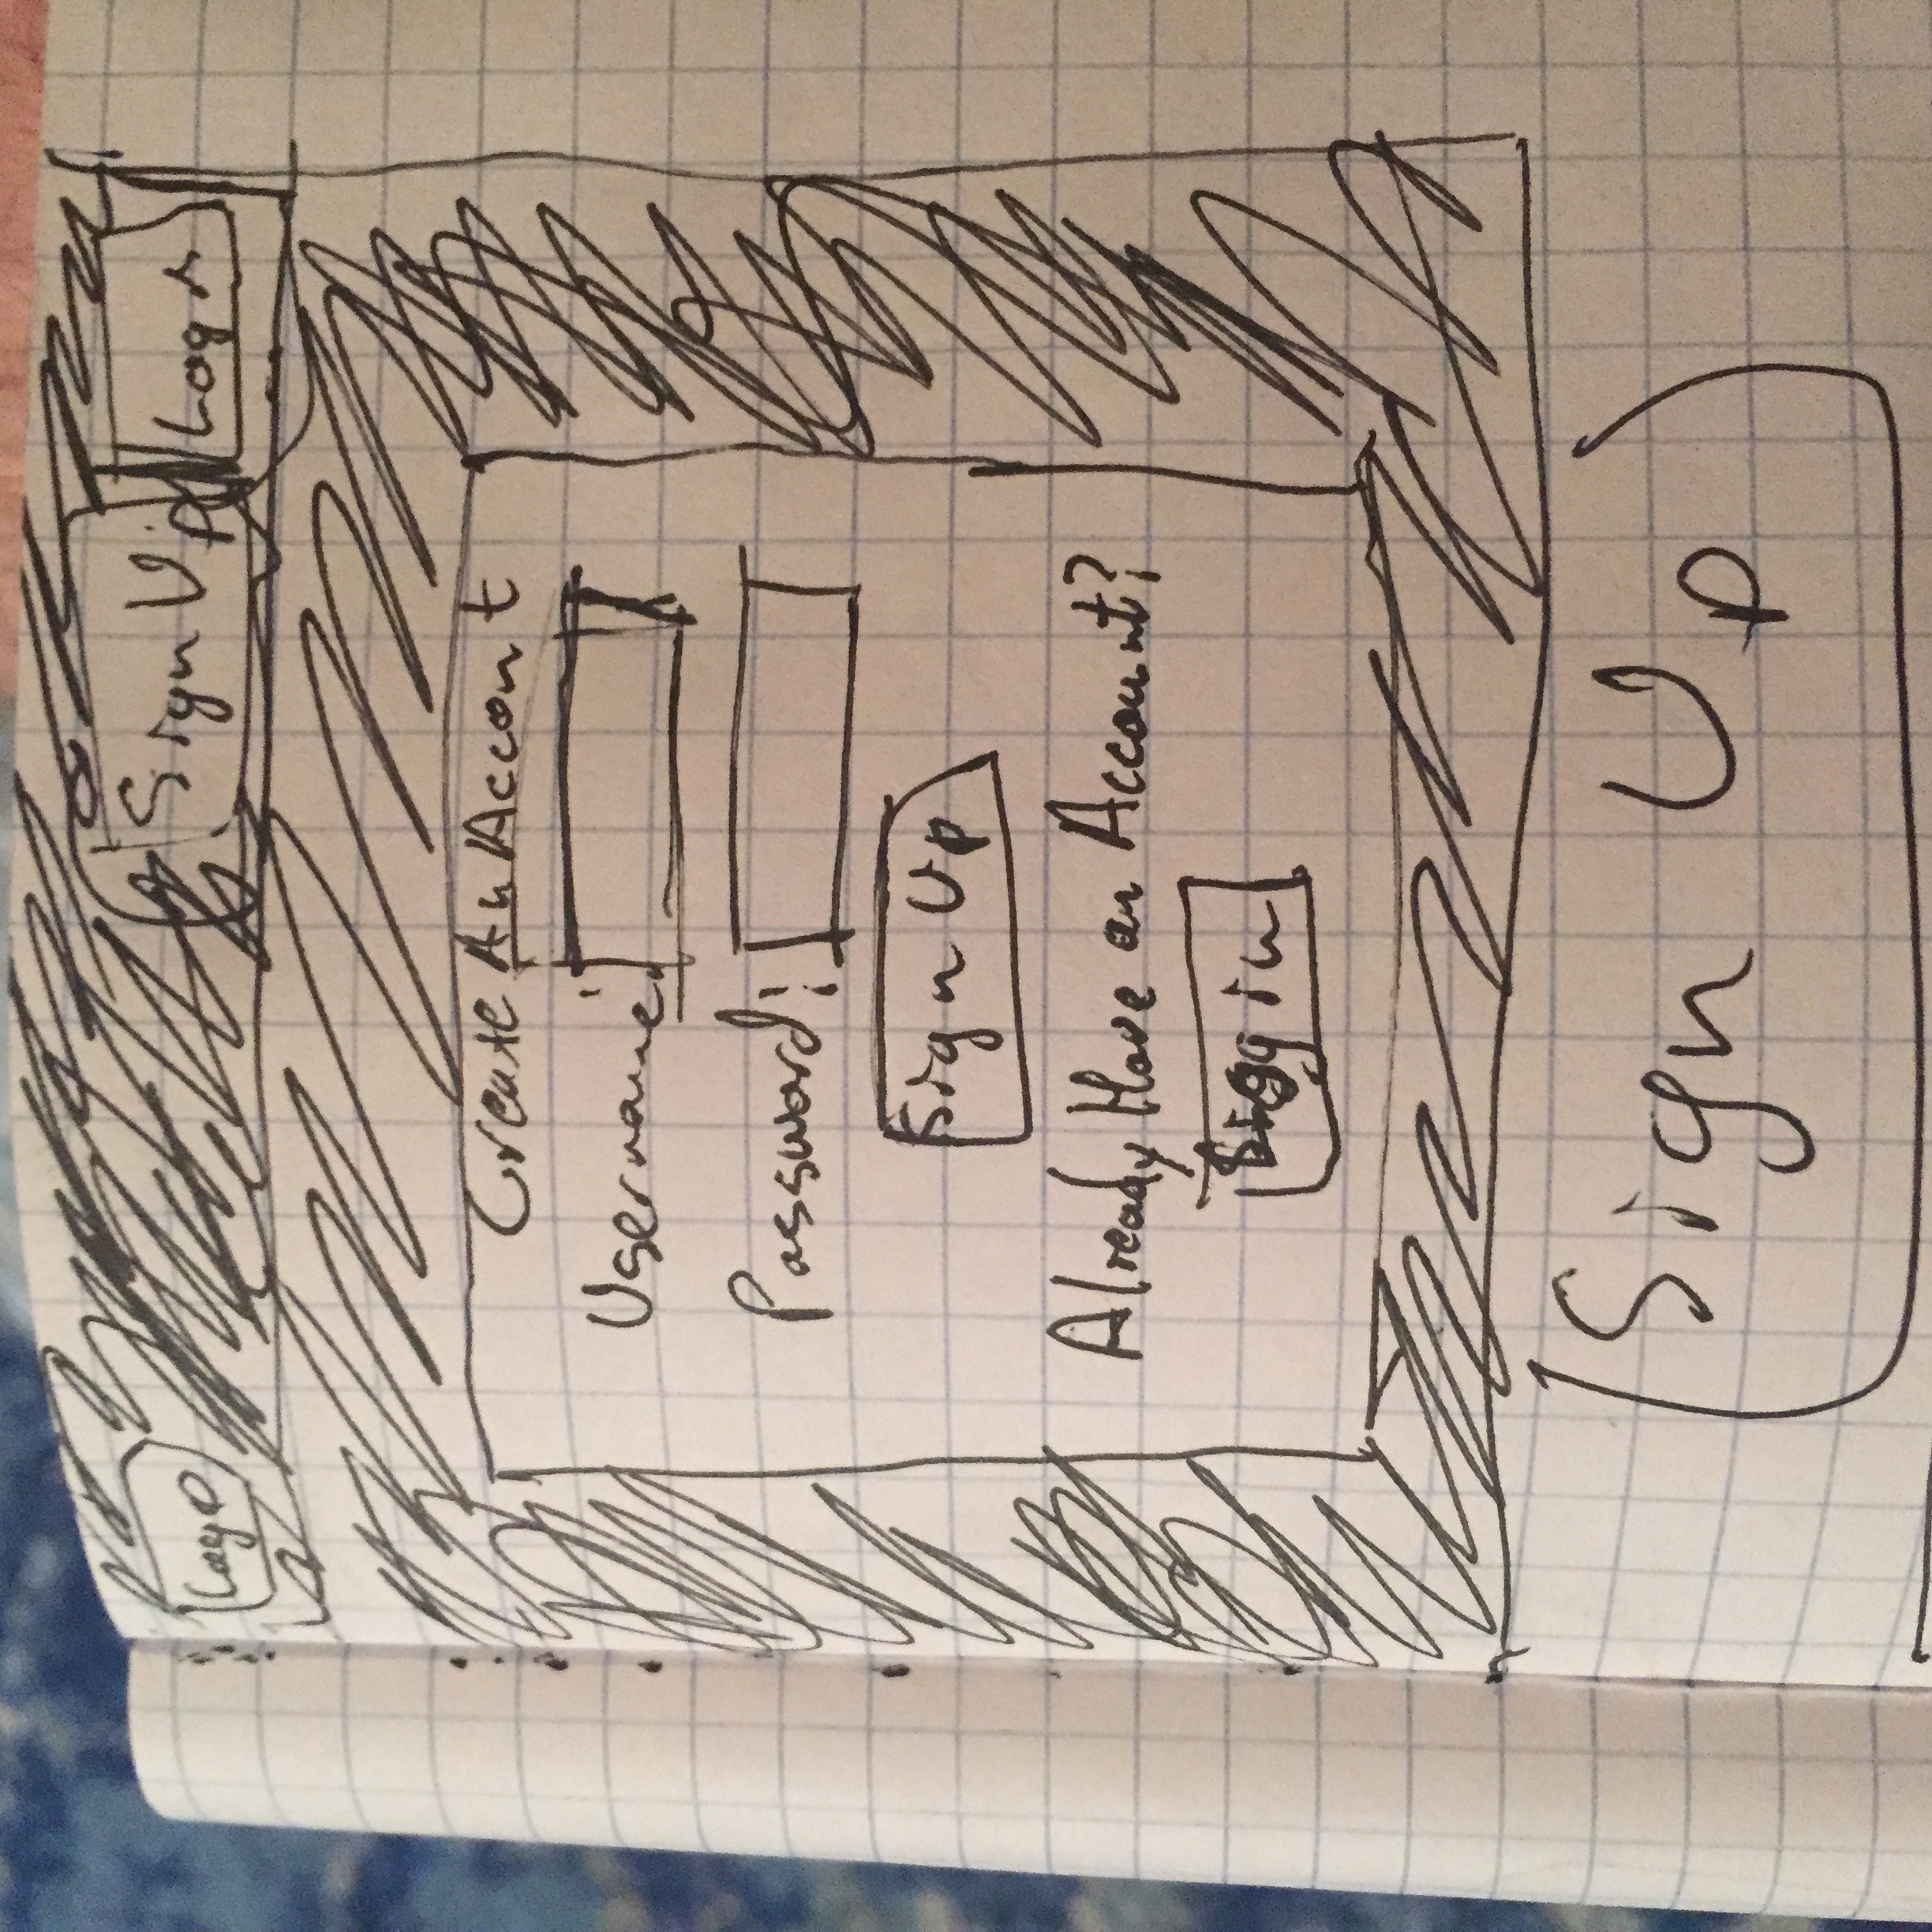 Logo Sign Up Login
Create An Accont
Username:
Password:
Sign Up
Already Have an Account?
Sign in
Sign Up